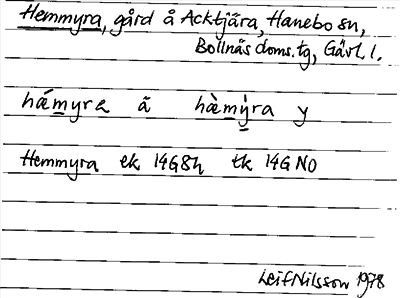 Hemmyra, gård å Acktjära, Hanebo sn,
Bollnäs doms. tg, Gävl. l.
hǽm̲yra ä hæ̀m̲ỵ̀ra y
Hemmyra ek 14G8h tk 14G NO
Leif Nilsson 1978